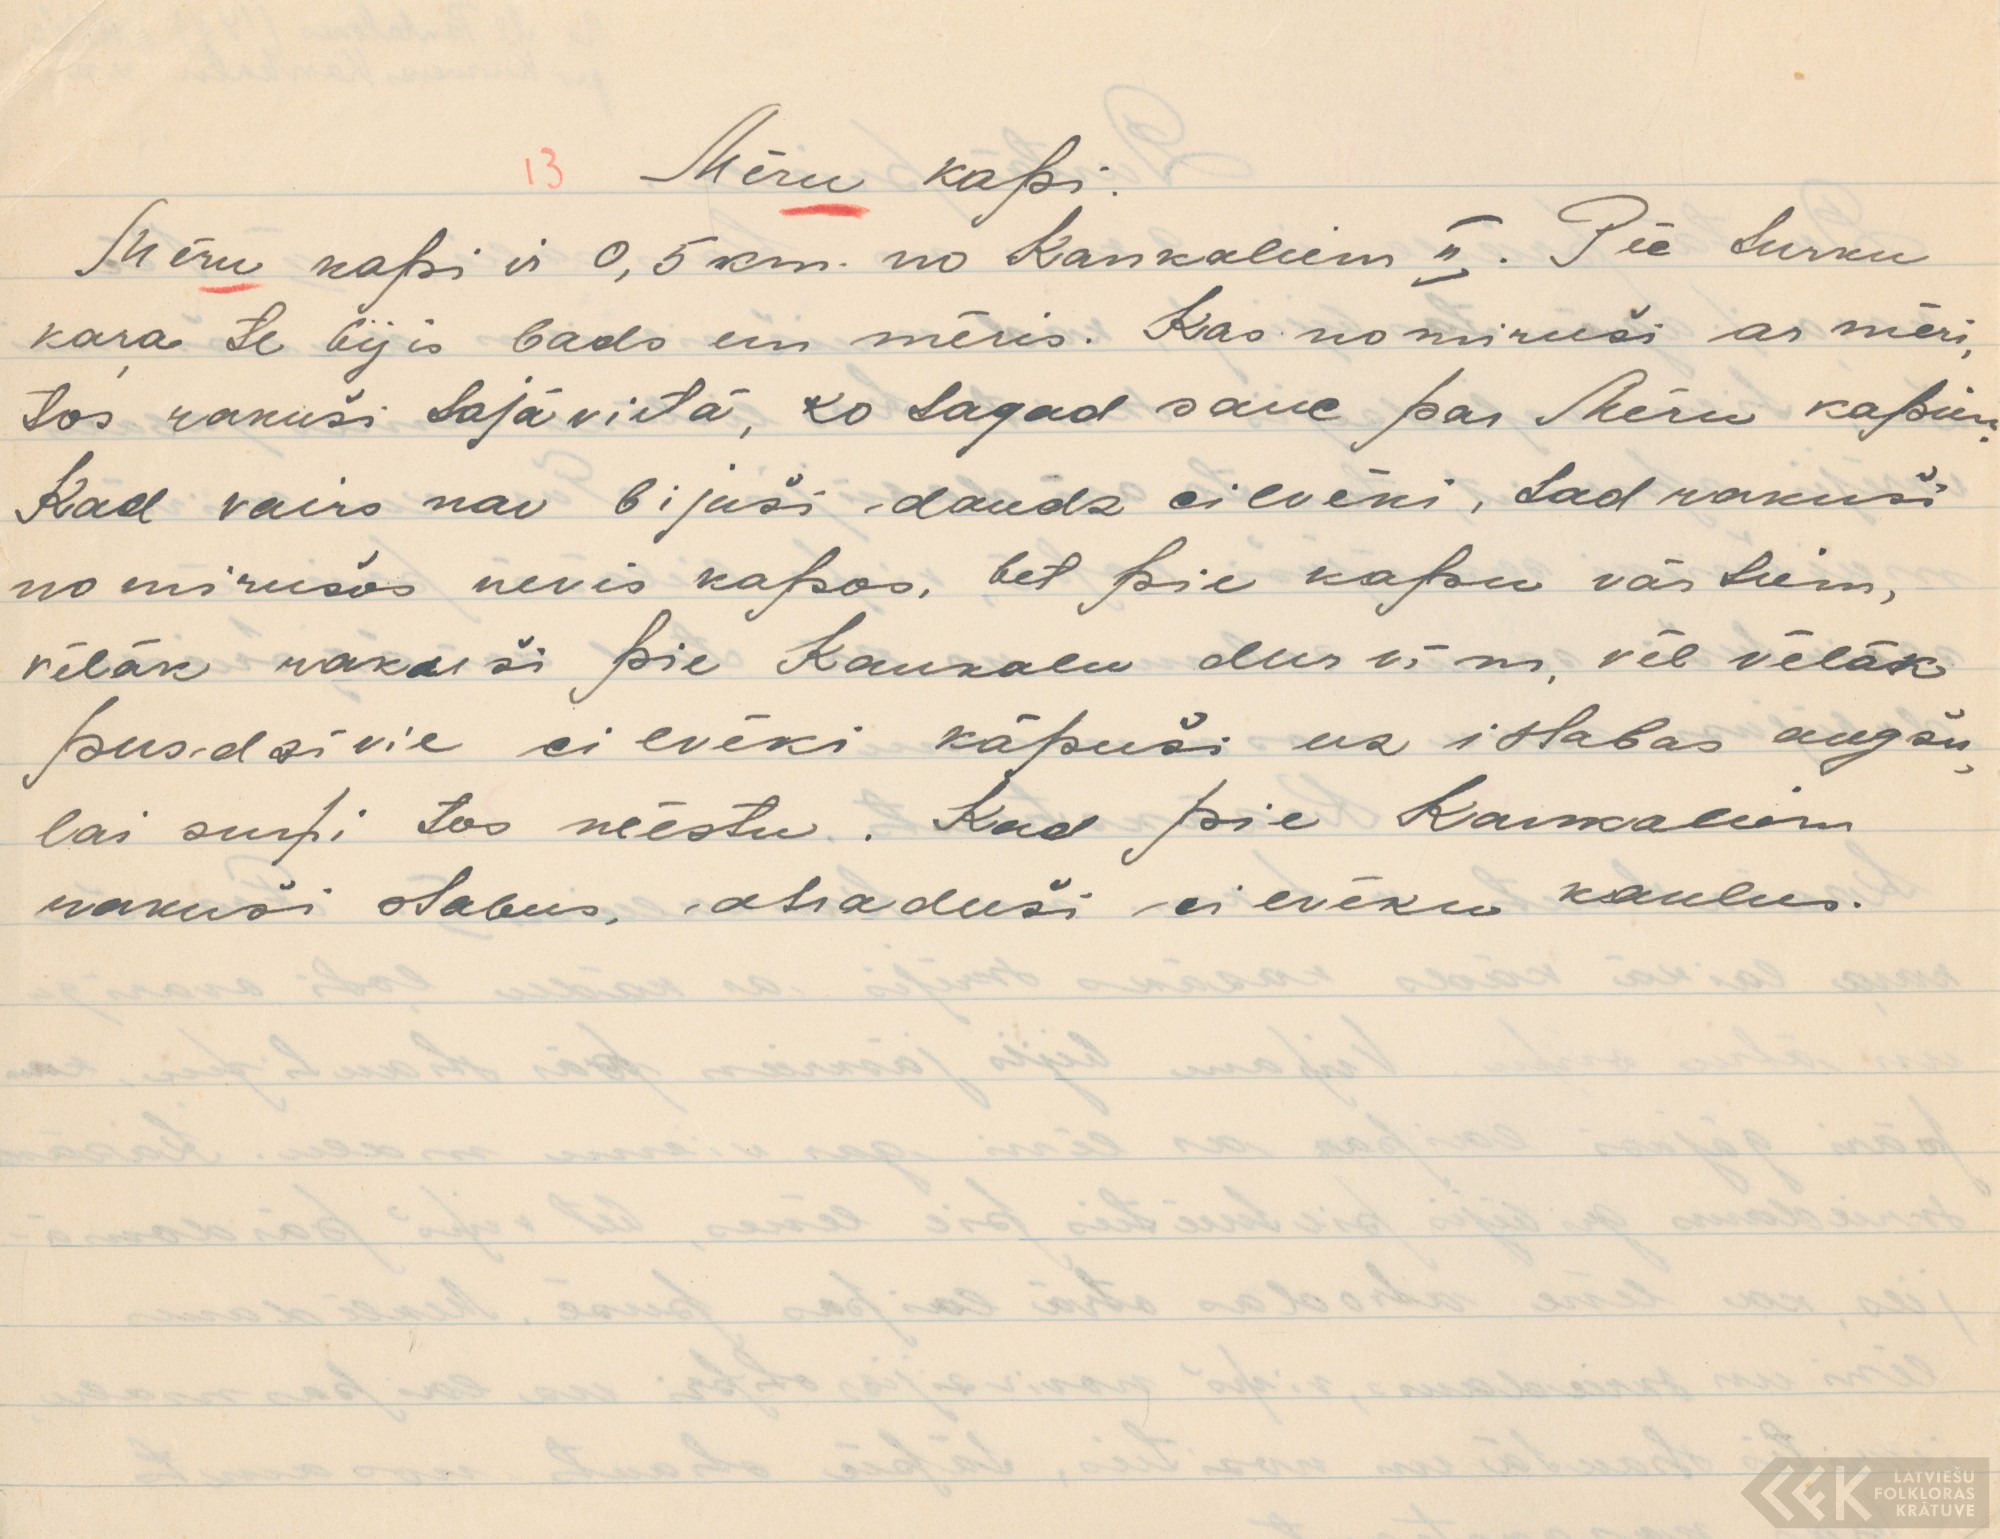 13 Mēru kapi.
Mēru kapi ir 0,5 km. no Kankaliem II. Pie turku
kaŗa te bijis bads un mēris. Kas nomiruši ar mēri,
tos rakuši tajā vietā, ko tagad sauc par Mēru kapiem.
Kad vairs nav bijuši daudz cilvēki, tad rakuši
nomirušos nevis kapos, bet pie kapu vārtiem,
vēlāk rakuši pie Kankalu durvīm, vēl vēlāk
pusdzīvie cilvēki kāpuši uz istabas augšu,
lai suņi tos neēstu. Kad pie Kankaliem
rakuši stabus, atraduši cilvēku kaulus.
LATVIEŠU
FOLKLORAS
KRĀTUVE